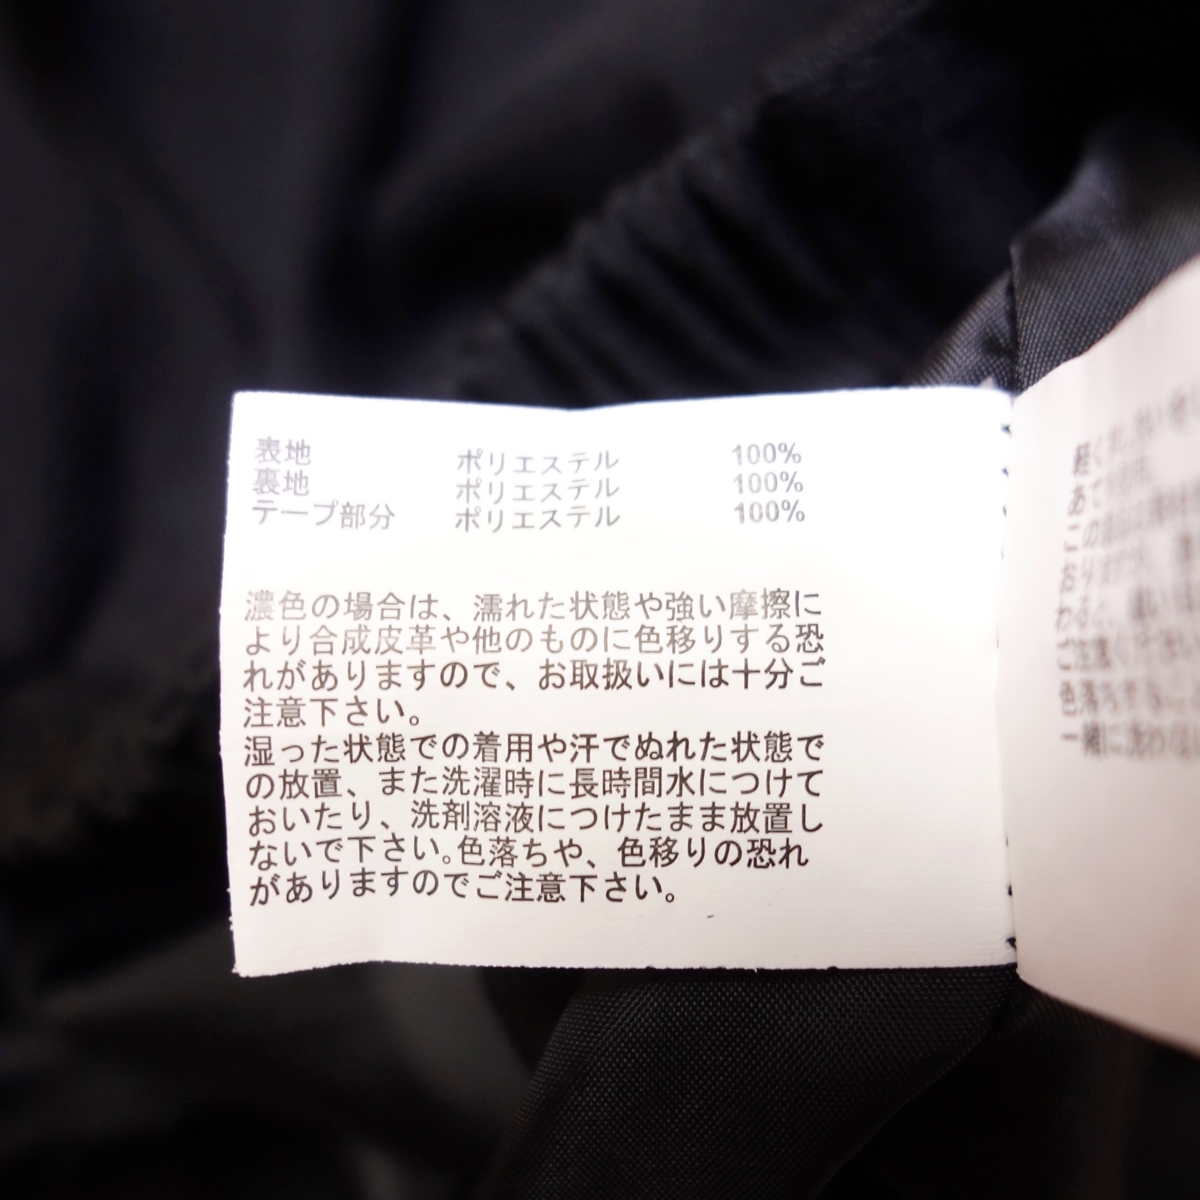 表地 ポリエステル 100%
裏地 ポリエステル 100%
テープ部分 ポリエステル 100%
濃色の場合は、濡れた状態や強い摩擦に
より合成皮革や他のものに色移りする恐
れがありますので、お取扱いには十分ご
注意下さい。
湿った状態での着用や汗でぬれた状態で
の放置、また洗濯時に長時間水につけて
おいたり、洗剤溶液につけたまま放置し
ないで下さい。色落ちや、色移りの恐れ
がありますのでご注意下さい。
軽く
あて
この
おり
わると
ご注意ください
色落ちする
一緒に洗わな